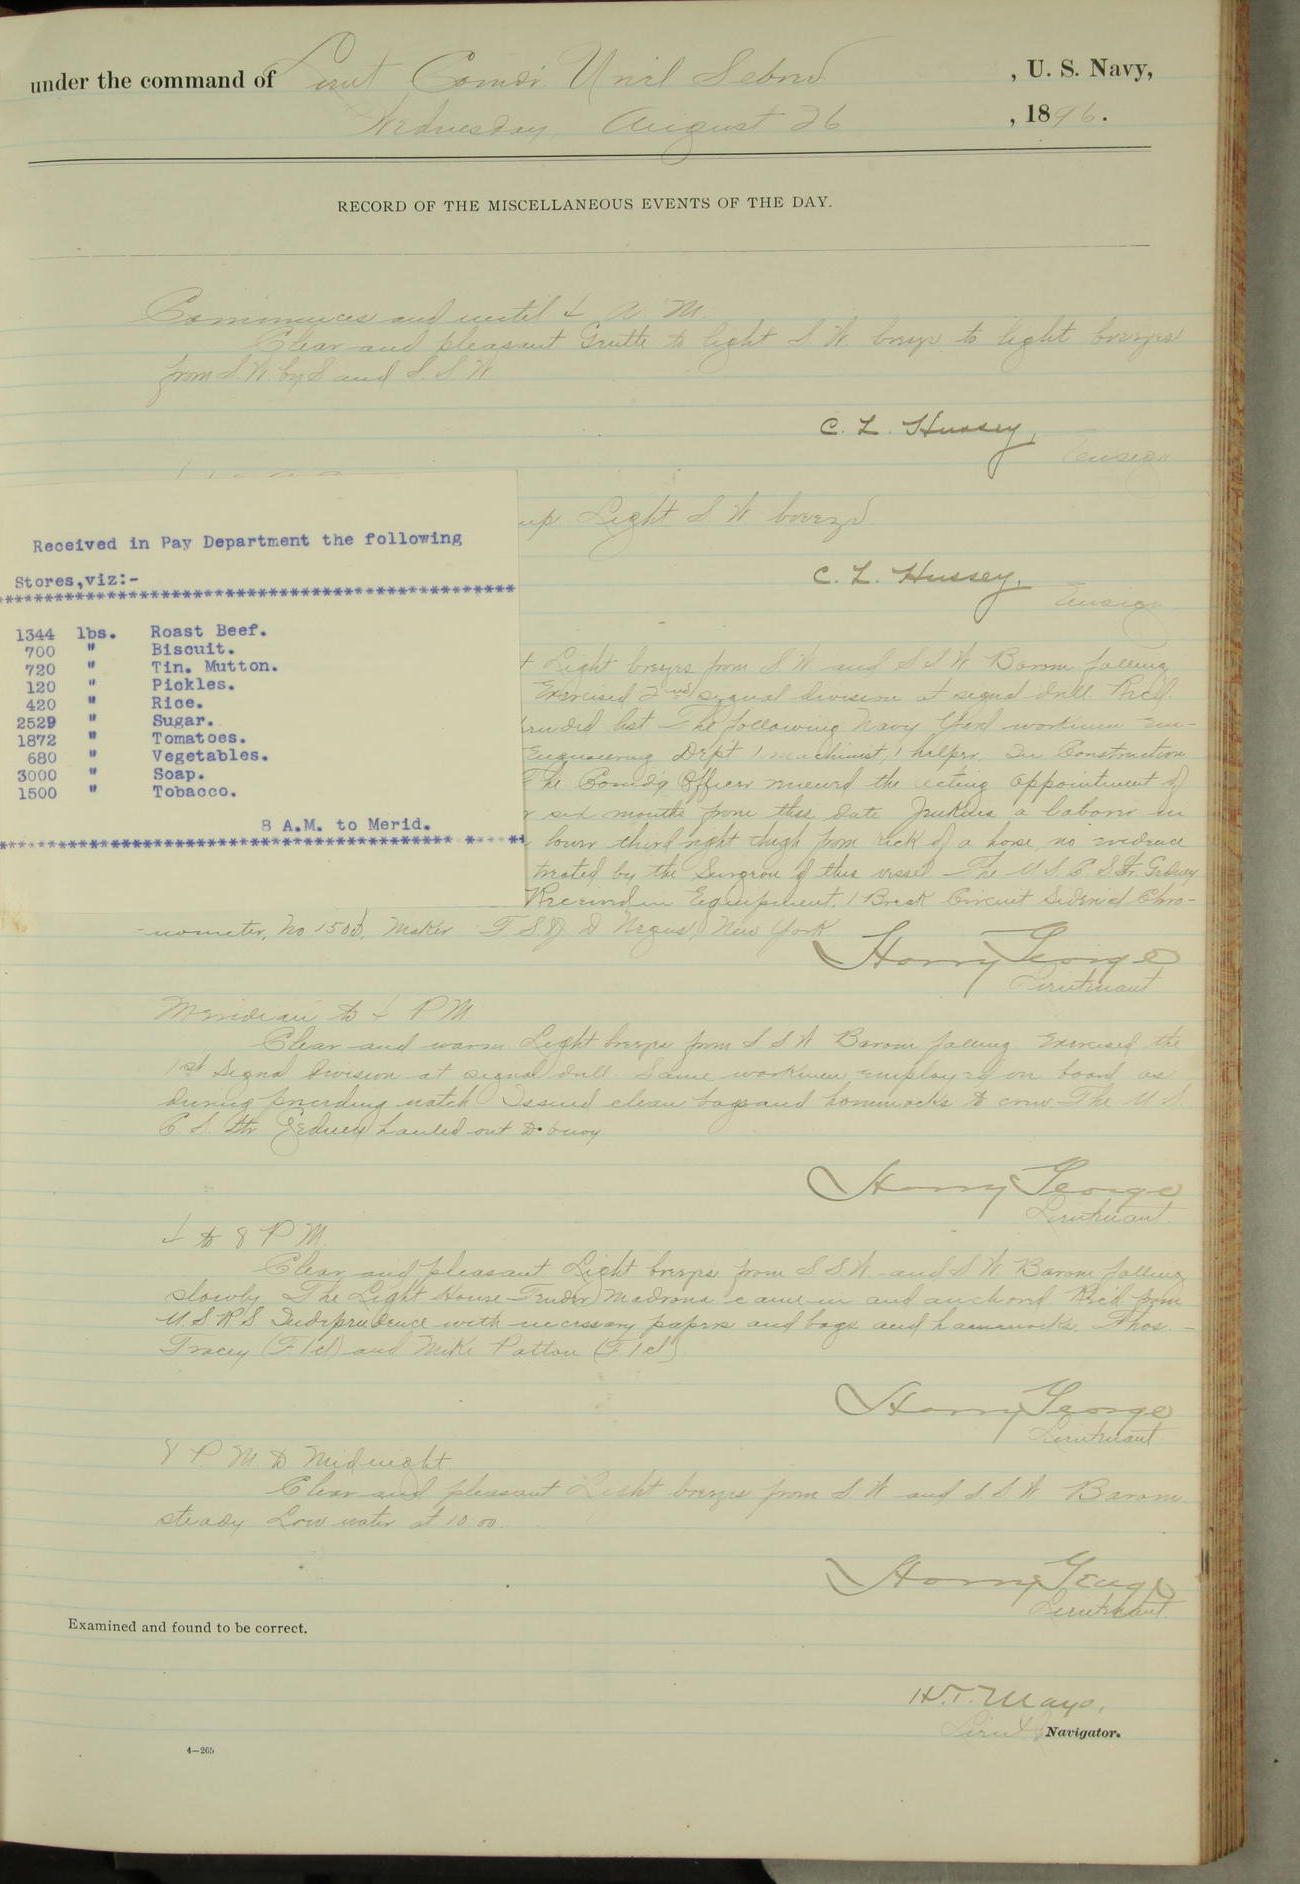 under the command of Lieut Comdr Uriel Sebree , U. S. Navy,
Wednesday, August 26 , 1896.
RECORD OF THE MISCELLANEOUS EVENTS OF THE DAY.
Commences and until 4 A M.
Clear and pleasant Gentle to light S W. breeze to light breezes
from S. W. by S and S. S. W
C. L. Hussey,
Ensign
up Light S W breeze
C. L. Hussey,
Ensign
Received in Pay Department the following
Stores,viz:-
1344 lbs. Roast Beef.
700 " Biscuit.
720 " Tin. Mutton.
120 " Pickles.
420 " Rice.
2529 " Sugar.
1872 " Tomatoes.
680 " Vegetables.
3000 " Soap.
1500 " Tobacco.
8 A.M. to Merid.
Light breezes from S. W and S S W Barom falling
Exercised 2nd signal division at signal drill Rec'd
list The following Navy Yard workmen em-
Engineering Dept 1 machinist, 1 helper. In Construction
The Comdg Officer renewed the acting appointment of
six months from this date Jenkins a laborer in
lower third right thigh from kick of a horse, no evidence
treated by the Surgeon of this vessel The U S C. S. Str. Gedney
Received in Equipment, 1 Break Circuit Sidereal Chro-
-nometer, No 1503, Maker T S & J D Negus, New York
Harry George
Lieutenant
Meridian to 4 P M
Clear and warm Light breeze from S S W Barom falling Exercised the
1st Signal Division at signal drill Same workmen employed on board as
during preceding watch Issued clean bags and hammocks to crew The U S
C S. Str Gedney hauled out to buoy
Harry George
Lieutenant.
4 to 8 P M
Clear and pleasant Light breezes from S S W and S W Barom falling
slowly The Light House Tender Madrona came in and anchored Rec'd from
U. S R S Independence with necessary papers and bags and hammocks Thos. -
Tracey (F. 1 cl) and Mike Patton (F 1 cl)
Harry George
Lieutenant
8 P M to Midnight
Clear and pleasant Light breezes from S. W and S S W Barom
steady Low water at 10 00
Harry George
Lieutenant.
Examined and found to be correct.
H. T. Mayo,
Lieut Navigator.
4—265